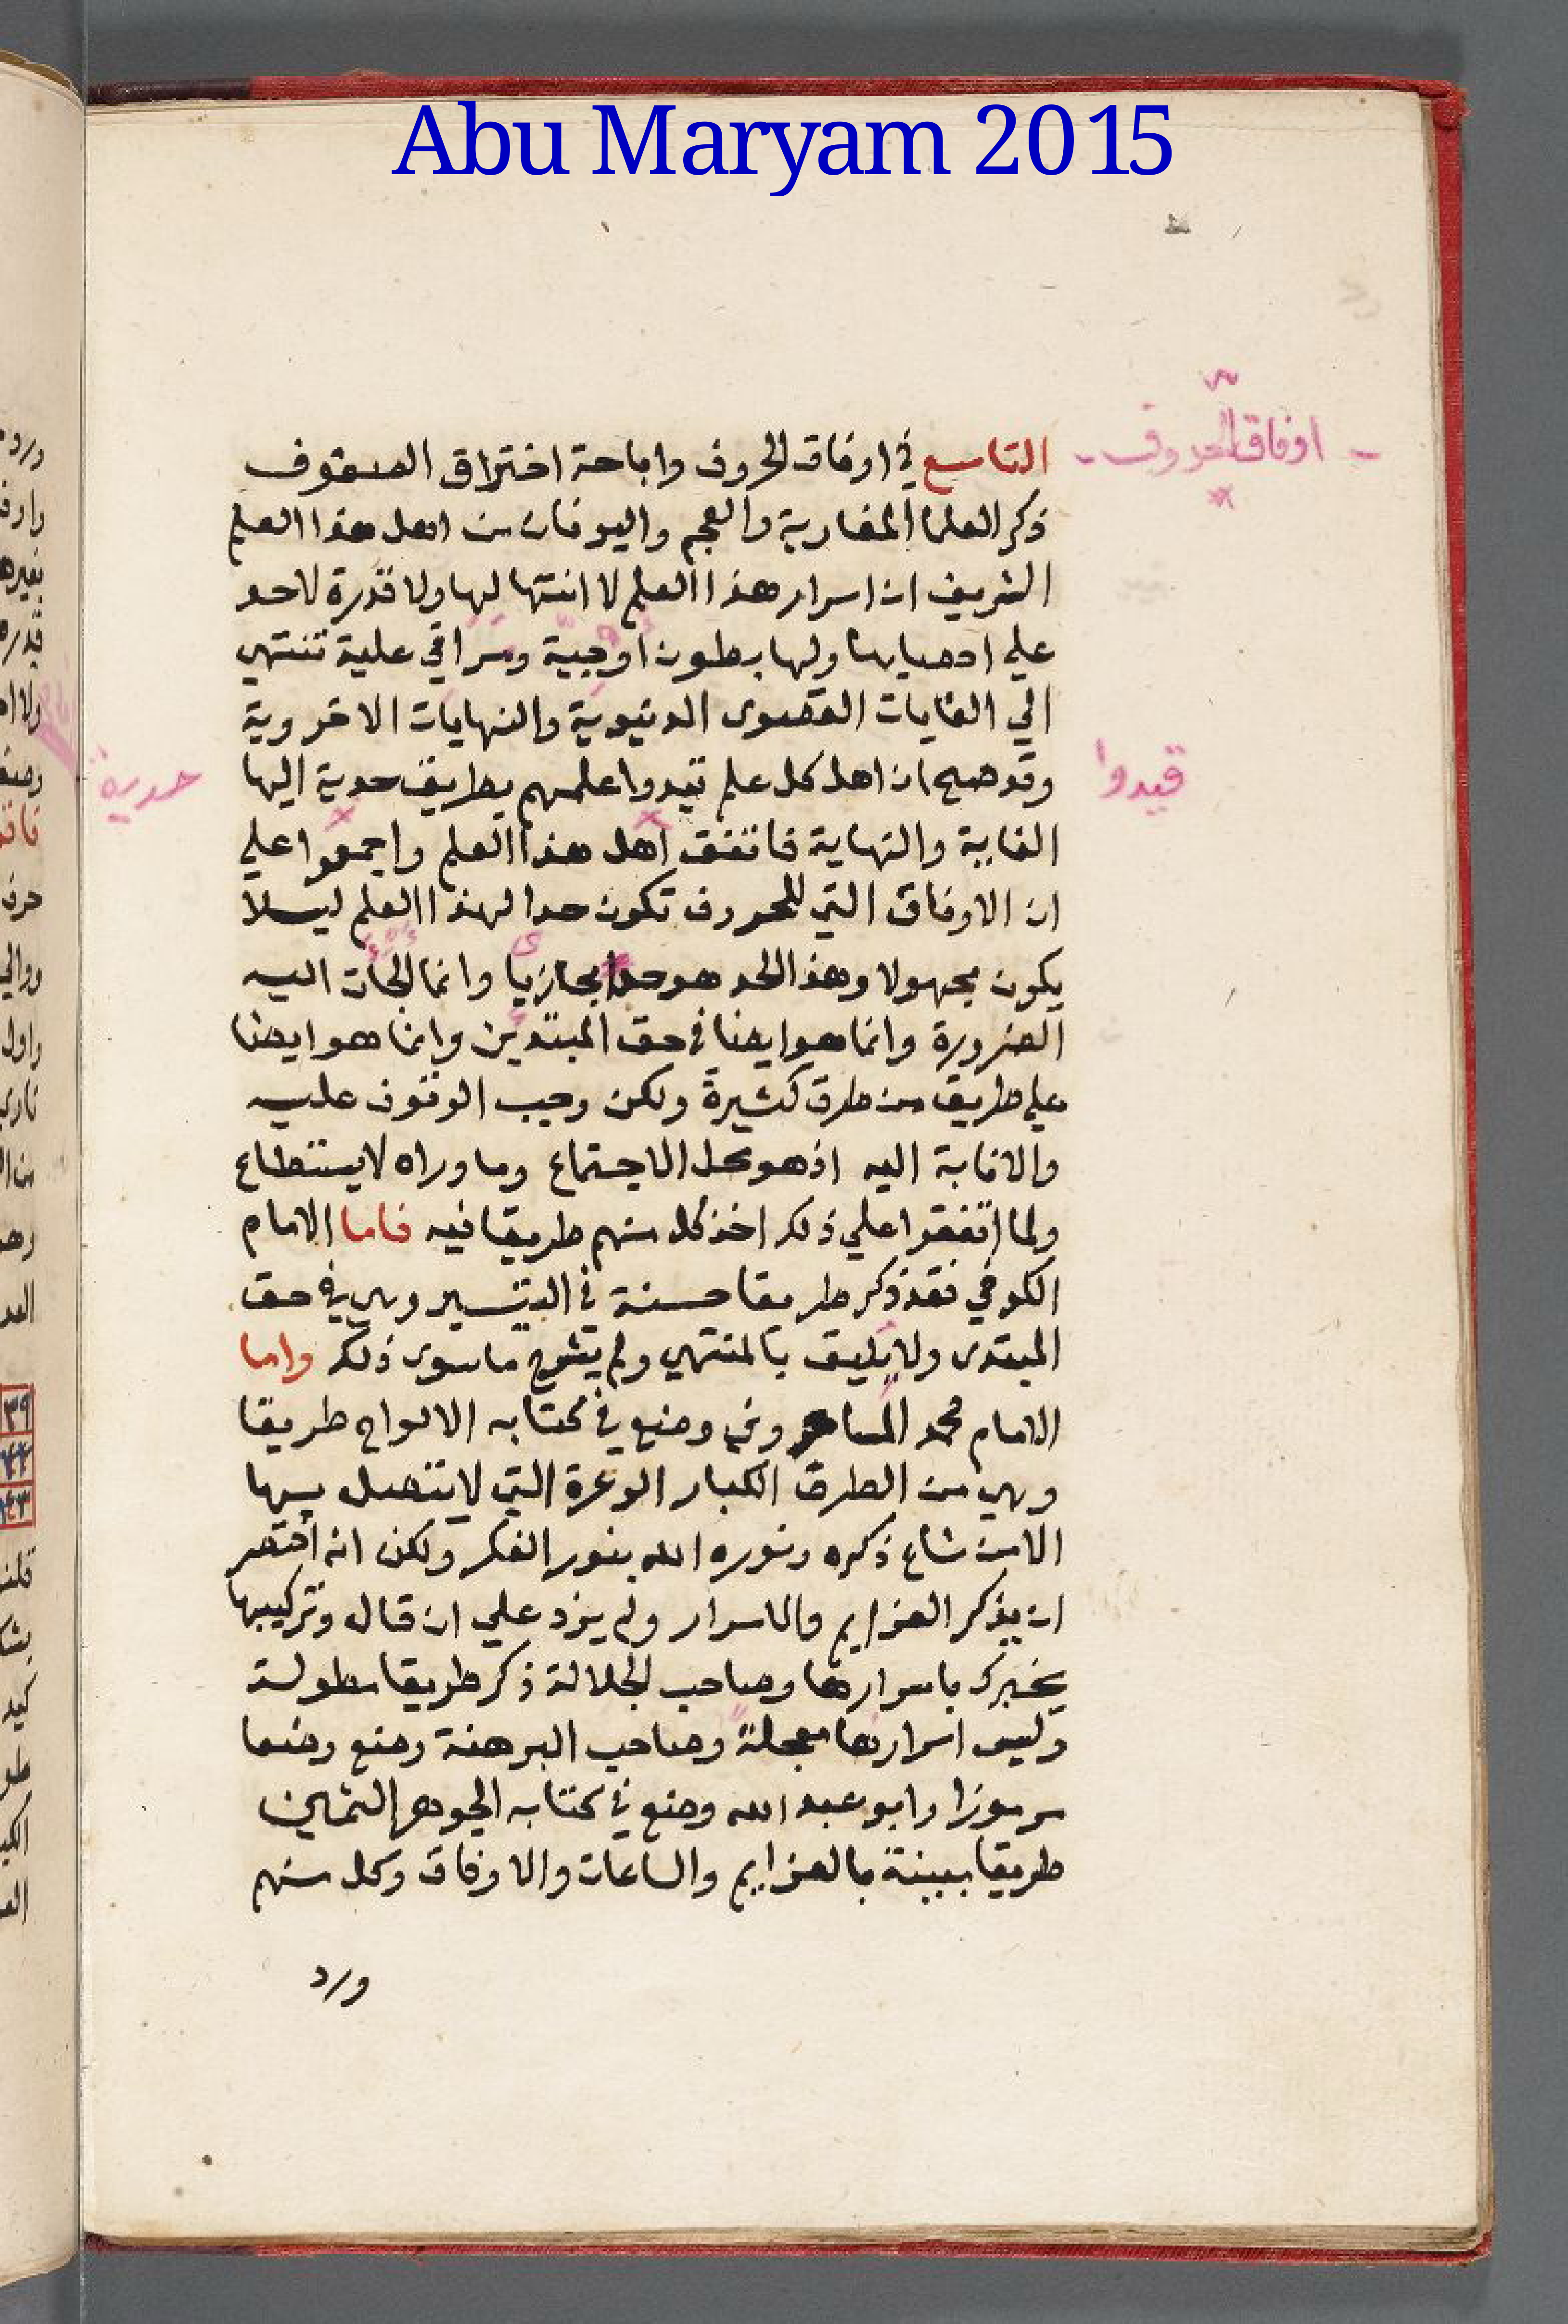 Abu Maryam 2015
- اوفاق الحروف -
التاسع في اوفاق الحروف واباحة اختراق السقوف
ذكر العلما المغاربة والعجم واليونان من اهل هذا العلم
الشريف ان اسرار هذا العلم لا انتها لها ولا قدرة لاحد
علي احصايها ولها بطون اوجبية ومراقي علية تنتهي
الي الغايات القصوى الدنيوية والنهايات الاخروية
قيدوا
وقد صح ان اهل كل علم قيدوا علمهم بطريق حدية اليها
حدية
الغاية والنهاية فاتفق اهل هذا العلم واجمعوا علي
ان الاوفاق التي للحروف تكون حدا لهذا العلم ليلا
يكون مجهولا وهذا الحد هو حدا مجازيا وانما لجات اليه
الضرورة وانما هو ايضا في حق المبتديين وانما هو ايضا
علي طريق من طرق كثيرة ولكن وجب الوقوف عليه
والانابة اليه اذ هو محل الاجتماع وما وراه لا يستطاع
ولما اتفقوا علي ذلك اخذ كل منهم طريقا فيه فاما الامام
الكوفي فقد ذكر طريقا حسنة في التيسير وهي في حق
المبتدى ولا يليق بالمنتهي ولم يشرح ما سوى ذلك واما
الامام محمد وضع في كتابه الالواح طريقا
وهي من الطرق الكبار الوعرة التي لا يتصل بها
الا من شاع ذكره ونوره الله بنور الفكر ولكن انه اختصر
ان يذكر العزايم والاسرار ولم يزد علي ان قال وتركيبها
يخبرك باسرارها وصاحب الجلالة ذكر طريقا مطولة
وليس اسرارها معجلة وصاحب البرهنة وضع وضعا
مرموزا وابو عبد الله وضع في كتابه الجوهر الثمين
طريقا ببينة بالعزايم والساعات والاوفاق وكل منهم
ورد